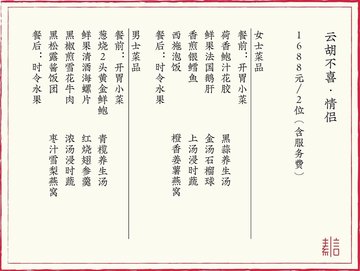 云胡不喜·情侣
1688元/2位（含服务费）
女士菜品
餐前：开胃小菜
荷香鲍汁花胶　黑蒜养生汤
鲜果法国鹅肝　金汤石榴球
香煎银鳕鱼　上汤浸时蔬
西施泡饭　橙香姜薯燕窝
餐后：时令水果
男士菜品
餐前：开胃小菜
葱烧2头黄金鲜鲍　青榄养生汤
鲜果清酒海螺片　红烧翅参羹
黑椒煎雪花牛肉　浓汤浸时蔬
黑松露酱饭团　枣汁雪梨燕窝
餐后：时令水果
素言